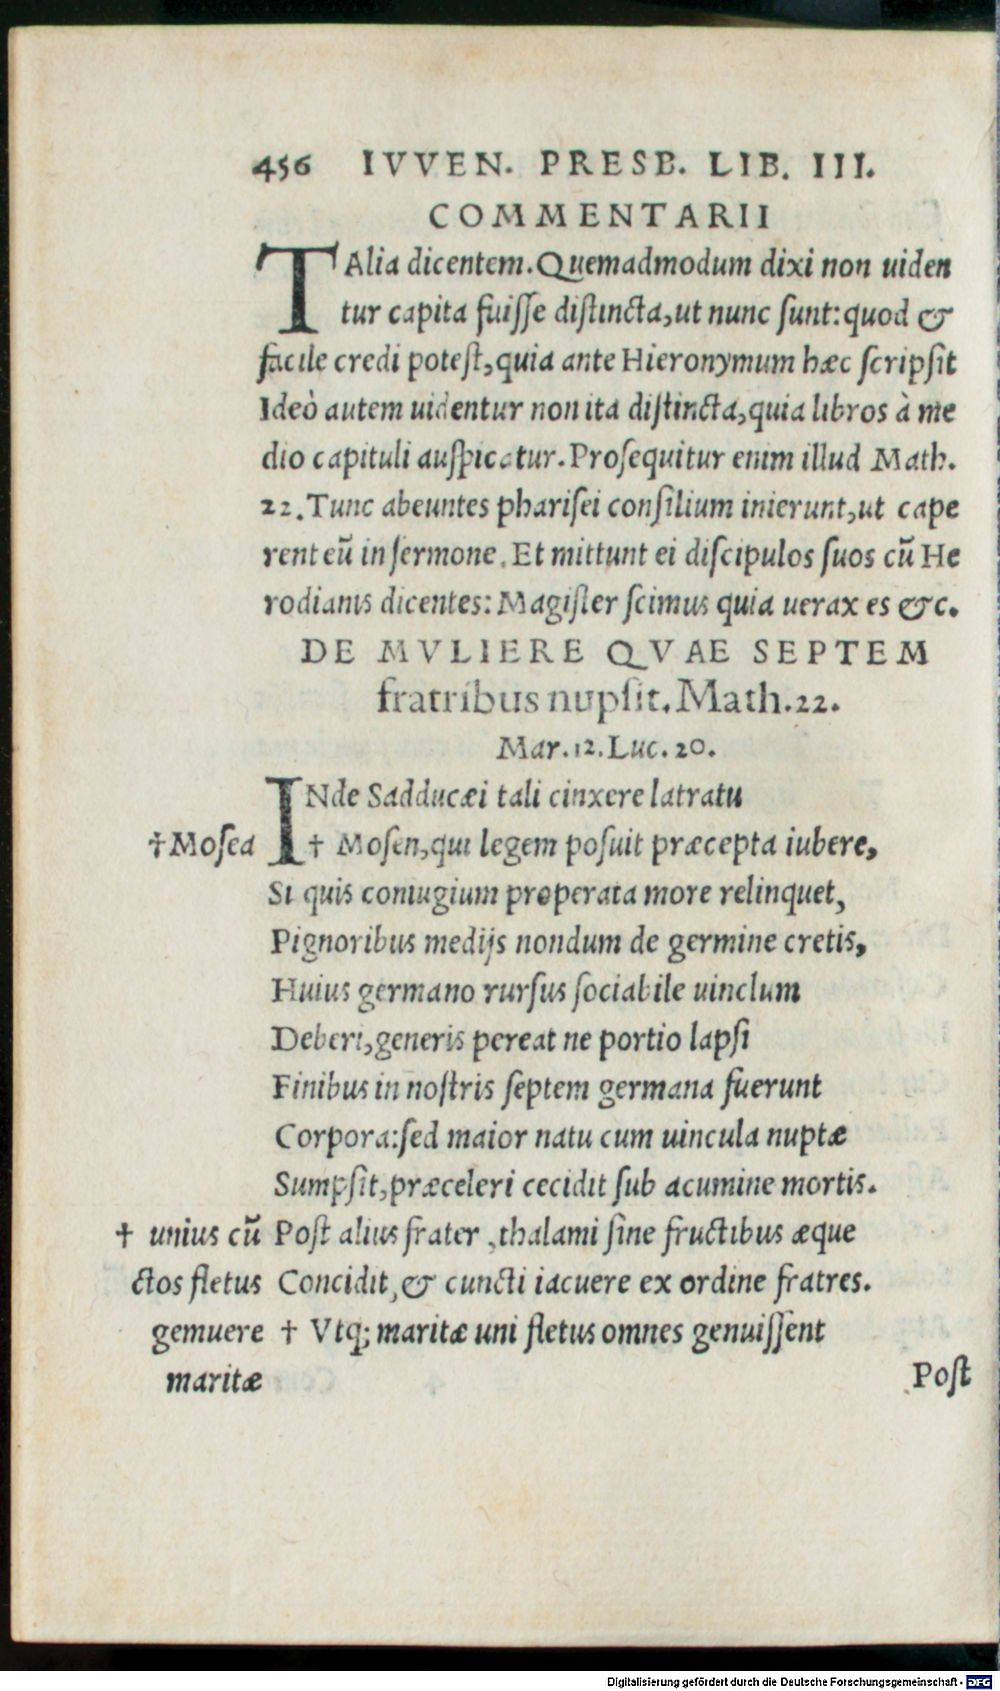 456 IVVEN. PRESB. LIB. III.
COMMENTARII
TAlia dicentem. Quemadmodum dixi non uiden
tur capita fuisse distincta, ut nunc sunt: quod &
facile credi potest, quia ante Hieronymum hæc scripsit
Ideò autem uidentur non ita distincta, quia libros à me
dio capituli auspicatur. Prosequitur enim illud Math.
22. Tunc abeuntes pharisei consilium inierunt, ut cape
rent eũ in sermone. Et mittunt ei discipulos suos cũ He
rodianis dicentes: Magister scimus quia uerax es &c.
DE MVLIERE QVAE SEPTEM
fratribus nupsit. Math. 22.
Mar. 12. Luc. 20.
INde Sadducæi tali cinxere latratu
†Mosea † Mosen, qui legem posuit præcepta iubere,
Si quis coniugium properata more relinquet,
Pignoribus medijs nondum de germine cretis,
Huius germano rursus sociabile uinclum
Deberi, generis pereat ne portio lapsi
Finibus in nostris septem germana fuerunt
Corpora: sed maior natu cum uincula nuptæ
Sumpsit, præceleri cecidit sub acumine mortis.
† unius cũ Post alius frater, thalami sine fructibus æque
ctos fletus Concidit, & cuncti iacuere ex ordine fratres.
gemuere † Vtq; maritæ uni fletus omnes genuissent
maritæ
Post
Digitalisierung gefördert durch die Deutsche Forschungsgemeinschaft - DFG